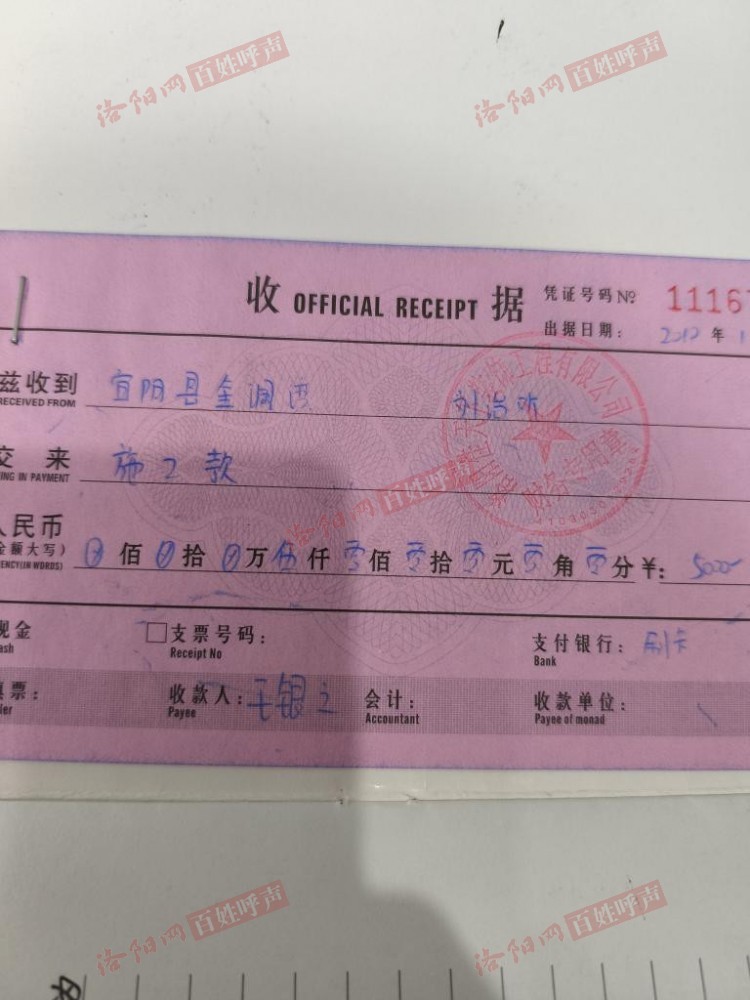 洛阳网 百姓呼声
洛阳网 百姓呼声
收 OFFICIAL RECEIPT 据
凭证号码 Nº 11167
出据日期: 年
兹收到 宜阳县金润湾
RECEIVED FROM
财务专用章
交 来 施工款
ING IN PAYMENT
洛阳网 百姓呼声
人民币
金额大写)
ENCY(IN WORDS)
佰 拾 万 伍 仟 零 佰 零 拾 零 元 零 角 零 分 ¥: 5000
现金
ash
□支票号码:
Receipt No
支付银行: 刷卡
Bank
票:
ler
收款人: 王银立
Payee
会计:
Accountant
收款单位:
Payee of monad
洛阳网 百姓呼声
洛阳网 百姓呼声